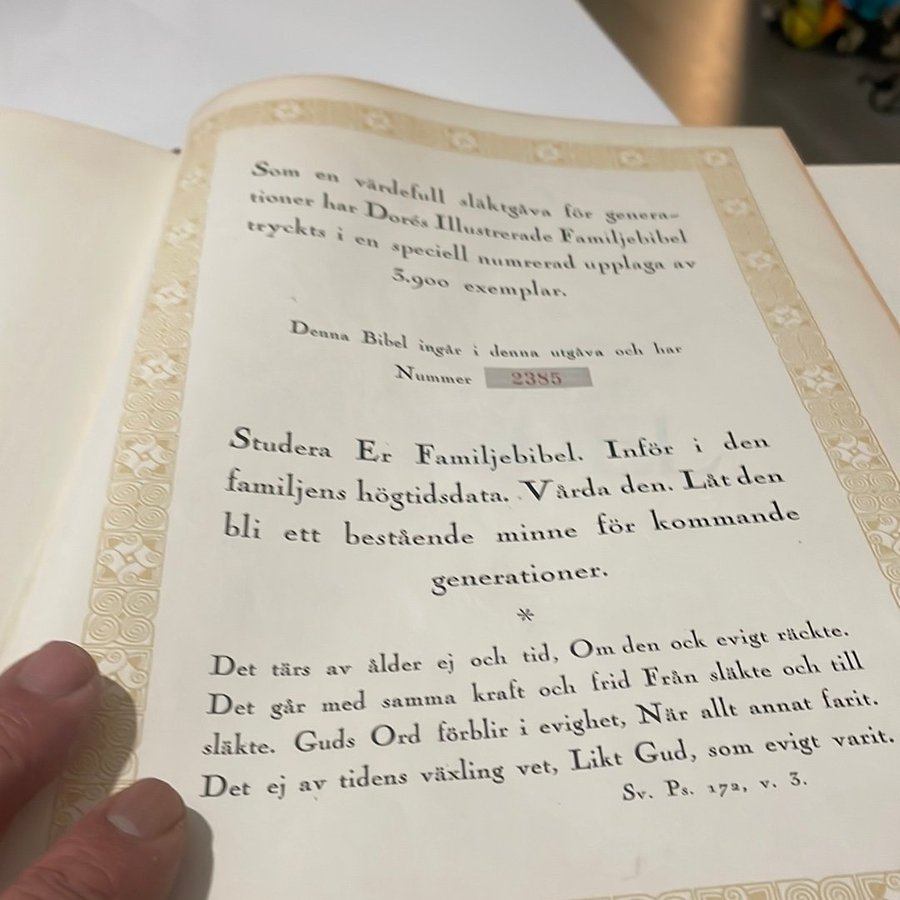 Som en värdefull släktgåva för genera-
tioner har Dorés Illustrerade Familjebibel
tryckts i en speciell numrerad upplaga av
3.900 exemplar.
Denna Bibel ingår i denna utgåva och har
Nummer 2385
Studera Er Familjebibel. Inför i den
familjens högtidsdata. Vårda den. Låt den
bli ett bestående minne för kommande
generationer.
*
Det tärs av ålder ej och tid, Om den ock evigt räckte.
Det går med samma kraft och frid Från släkte och till
släkte. Guds Ord förblir i evighet, När allt annat farit.
Det ej av tidens växling vet, Likt Gud, som evigt varit.
Sv. Ps. 172, v. 3.